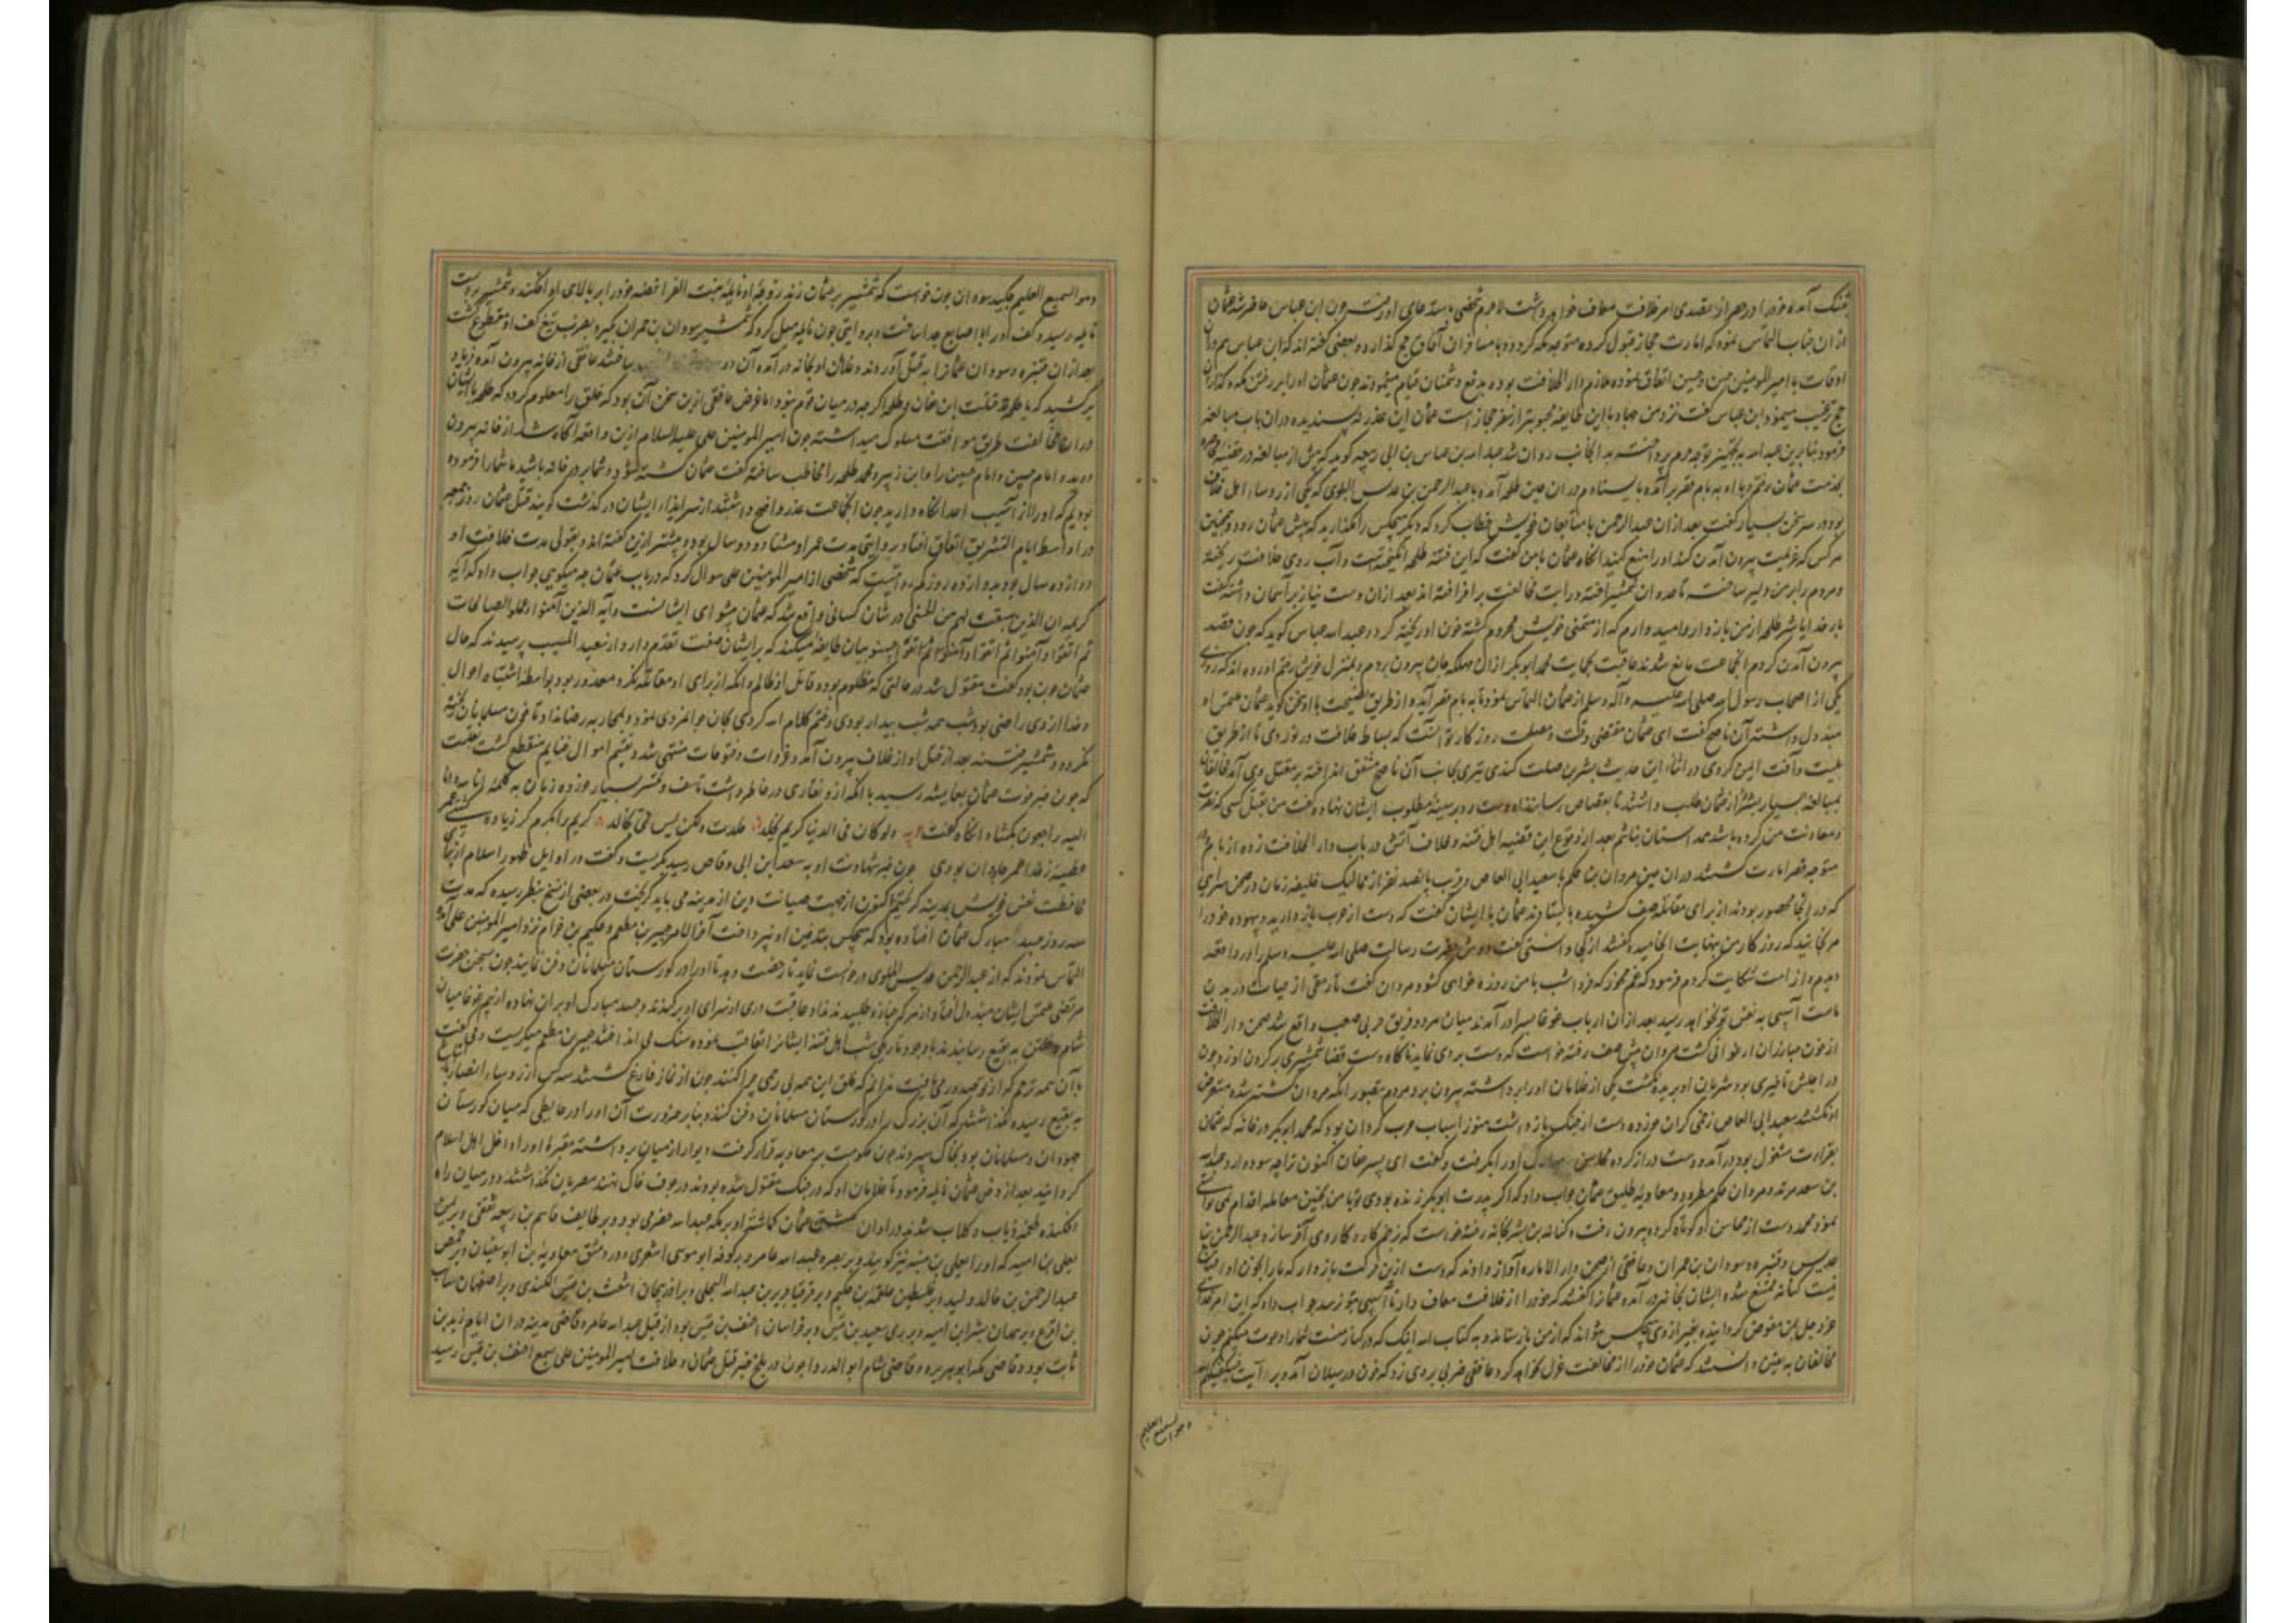 بتنک آمده خود را در هر از تصدی امر خلافت معاف خواهد داشت لاجرم شخصی باستدعای او رفت چون ابن عباس حاضر شد عثمان
از ان جناب التماس نمود که امارت حجاز قبول کرده متوجه مکه کردد و با مسافران آفاق حج کذارد و بعضی کفته اند که ابن عباس هم دران
اوقات با امیر المومنین حسن و حسین اتفاق نموده ملازم دار الخلافت بوده بدفع دشمنان قیام مینمودند چون عثمان او را بر رفتن مکه و کذاردن
حج ترغیب مینمود ابن عباس کفت نزد من جهاد با این طایفه محبوبتر از سفر حجاز است عثمان این عذر نه پسندیده دران باب مبالغه
فرمود بنابرین عبد الله به تجهیز توجه حرم پرداخت بدانجانب روان شد عبد الله بن عباس بن ابی ربیعه کوید که پیش از مبالغه در قضیه
بخدمت عثمان رفتم و با او به بام قصر برآمده بایستادم دران حین طلحه آمده با عبد الرحمن بن عدیس البلوی که یکی از روساء اهل خلاف
بود در سر سخن بسیار کفت بعد ازان عبد الرحمن با متابعان خویش خطاب کرد که دیکر هیچکس را نکذارید که پیش عثمان رود و همچنین
هر کس که عزیمت بیرون آمدن کند او را منع کنید انکاه عثمان با من کفت که این فتنه طلحه انکیخته است و آب روی خلافت ریخته
و مردم را بر من دلیر ساخت تا عدوان شمشیر آخته و رایت مخالفت برافراخته اند بعد ازان دست نیاز بر آسمان داشته کفت
بار خدایا شر طلحه از من باز دار و امید وارم که از متمنی خویش محروم کشته خون او ریخته کردد عبد الله عباس کوید که چون قصد
بیرون آمدن کردم انجماعت مانع شدند عاقبت بحمایت محمد ابو بکر ازان مهلکه جان بیرون بردم و بمنزل خویش رفتم آورده اند که روزی
یکی از اصحاب رسول الله صلی الله علیه و آله وسلم از عثمان التماس نمود تا به بام قصر آید و از طریق نصیحت با او سخن کوید عثمان ملتمس او
مبذول داشته آن ناصح کفت ای عثمان مقتضی وقت و مصلحت روزکار تو آنست که بساط خلافت در نوردی تا از طریق
بلیت و آفت ایمن کردی در اثناء این حدیث کندی تیری بجانب آن ناصح مشفق انداخته بر مقتل وی آمد مخالفان
بمبالغه بسیار از عثمان طلب داشتند تا بقصاص رسانند او دست رد بر سینه مطلوب ایشان نهاده کفت من بقتل کسی که نصرت
و معاونت من کرده باشد همداستان نباشم بعد از وقوع این قضیه اهل فتنه و خلاف آتش در باب دار الخلافت زده از بام
متوجه قصر امارت کشتند دران حین مروان بن حکم با سعید ابی العاص و قرب پانصد نفر از ممالیک خلیفه زمان در صحن سرای
که در انجا محصور بودند از برای مقاتله صف کشیده بایستادند عثمان با ایشان کفت که دست از حرب باز دارید و بیهوده خود را
مرنجانید که روز کار من بنهایت انجامید کفتند از کجا دانستی کفت دوش حضرت رسالت صلی الله علیه وسلم را در واقعه
دیدم و از امت شکایت کردم فرمود که غم مخور که فردا شب با من روزه خواهی کشود مروان کفت تا رمقی از حیات در بدن
ماست آسیبی به نفس تو نخواهد رسید بعد ازان ارباب غوغا بسرا در آمدند میان هر دو فریق حربی صعب واقع شد صحن دار الخلافت
از خون مبارزان ارغوانی کشت مروان پیش صف رفته خواست که دست بردی نماید ناکاه دست قضا شمشیری بر کردن او زد و چون
در اجلش تاخیری بود شریان او بریده نکشت یکی از غلامان او را برداشته بیرون برد مردم بتصور انکه مروان کشته شده متعرض
او نکشتند سعید ابی العاص زخمی کران خورده دست از جنک باز داشت هنوز اسباب حرب کردان بود که محمد ابو بکر در خانه که عثمان
بقراءت مشغول بود در آمده دست دراز کرده محاسن مبارک او را بکرفت و کفت ای پسر عفان اکنون ترا چه سود دارد عبد الله
بن سعد مرتد و مروان حکم مطرود و معاویه طلیق عثمان جواب داد که اکر پدرت ابو بکر زنده بودی تو با من چنین معامله اقدام نمی توانستی
نمود محمد دست از محاسن او کوتاه کرده بیرون رفت و کنانه بن بشر بخانه رفته خواست که بزخم کارد کار وی آخر سازد عبد الرحمن بن
عدیس و قتیره و سودان بن حمران و غافقی از صحن دار الاماره آواز دادند که دست ازین حرکت باز دار که ما را بخون او احتیاج
نیست کنانه ممتنع شده ایشان بخانه در آمده عثمان را کفتند که خود را از خلافت معاف دار تا آسیبی بتو نرسد جواب داد که این امر خدای
عز و جل بمن مفوض کردانیده بغیر از وی هیچکس نتواند که از من باز ستاند و به کتاب الله اینک که در کنار منست شما را دعوت میکنم چون
مخالفان به یقین دانستند که عثمان خود را از مخالفت عزل نخواهد کرد غافقی ضربی بر وی زد که خون در سیلان آمد و بر آیت فسیکفیکهم الله
وهو السمیع العلیم
وهو السمیع العلیم چکید سودان چون خواست که شمشیر بر عثمان زند زوجه او نایله بنت الفرافصه خود را بر بالای او افکند و شمشیر بر دست
نایله رسیده کف او را با اصابع جدا ساخت و بروایتی چون نایله میل کرد که شمشیر سودان بن حمران بکیرد بضرب تیغ کف او مقطوع کشت
بعد ازان قتیره و سودان عثمانرا به قتل آوردند و غلامان او بخانه در آمده آن دو ساختند غافقی از خانه بیرون آمده فریاد
بر کشید که یا طلحه قتلت ابن عفان و طلحه اکرچه در میان قوم نبود اما غرض غافقی ازین سخن آن بود که خلق را معلوم کردد که طلحه با ایشان
دران مخالفت طریق موافقت مسلوک میداشته چون امیر المومنین علی علیه السلام ازین واقعه آکاه شد از خانه بیرون
دوید و امام حسن و امام حسین را و ابن زبیر و محمد طلحه را مخاطب ساخته کفت عثمان کشته شود و شما بر در خانه باشید ما شما را فرموده
بودیم که او را از آسیب اعدا نکاه دارید چون انجماعت عذر واضح داشتند از سر ایذاء ایشان در کذشت کویند قتل عثمان روز جمعه
در اواسط ایام التشریق اتفاق افتاد بروایتی مدت عمر او هشتاد و دو سال بود و بیشتر ازین کفته اند و بقولی مدت خلافت او
دوازده سال بود دوازده روز کم روایتست که شخصی از امیر المومنین علی سوال کرد که در باب عثمان چه میکویی جواب داد که آیه
کریمه ان الذین سبقت لهم من الحسنی در شان کسانی واقع شد که عثمان پیشوای ایشانست و آیه الذین آمنوا و عملوا الصالحات
ثم اتقوا و آمنوا ثم اتقوا و آمنوا ثم اتقوا و احسنوا بیان طایفه میکند که بر ایشان صفت تقدم دارد از سعید المسیب پرسیدند که حال
عثمان چون بود کفت مقتول شد در حالتی که مظلوم بود و قاتل او ظالم و انکه از برای او مقاتله نکرد معذور بود بواسطه اشتباه احوال
و خدا از وی راضی بود شب همه شب بیدار بودی و ختم کلام الله کردی بجان جوانمردی نمود و بمحاربه رضا نداد تا خون مسلمانان ریخته
نکردد و شمشیر فتنه بعد از قتل او از غلاف بیرون آمد و غزوات و فتوحات منتهی شد و تقسیم اموال غنایم منقطع کشت نقلست
که چون خبر فوت عثمان بعایشه رسید با انکه ازو نقاری در خاطر داشت تاسف و تحسر بسیار خورده زبان به کلمه انا لله و انا
الیه راجعون بکشاد انکاه کفت ولو کان فی الدنیا کریم یخلد خلدت ولکن لیس حی بخالد کریم را بکرم کر زیاده
همیشه زنده احمر جاودان بودی چون خبر شهادت او به سعد ابن ابی وقاص رسید بکریست و کفت در اوایل ظهور اسلام از برای
محافظت نفس خویش بمدینه کریختم اکنون از جهت صیانت دین از مدینه می باید کریخت در بعضی از نسخ بنظر رسیده که مدت
سه روز جسد مبارک عثمان افتاده بود که هیچکس بتدفین او نپرداخت آخر الامر جبیر بن مطعم و حکیم بن حزام نزد امیر المومنین علی آمده
التماس نمودند که از عبد الرحمن عدیس البلوی درخواست نماید تا رخصت دهد تا او را در کورستان مسلمانان دفن نمایند چون بسخن حضرت
مرتضی ملتمس ایشان مبذول افتاد از هر که جنازه طلبیدند نداد عاقبت دری از سرای او بر کندند و جسد مبارک او بر ان نهاده از بیم غوغا میان
شام و خفتن به بقیع رسانیدند با وجود تاریکی شب اهل فتنه ایشانرا تعاقب نموده سنک می انداختند جبیر بن مطعم میکریست و می کفت
با آن همه ترحم که از تو بصدور می یافت ندانم که خلق این همه بی رحمی چرا کنند چون از نماز فارغ کشتند سه کس از روساء انصار
به بقیع رسیده نکذاشتند که آن بزرک را در کورستان مسلمانان دفن کنند و بنابر ضرورت آن او را در حایطی که میان کورستان
جهودان و مسلمانان بود بخاک سپردند چون حکومت بر معاویه قرار کرفت دیوار از میان برداشته مقبره او را داخل اهل اسلام
کردانید بعد از دفن عثمان نایله فرمود تا غلامان او که در جنک مقتول شده بودند در جوف خاک نهند مصریان نکذاشتند و در میان راه
افکنده طعمه ذیاب و کلاب شدند در اوان کشتن عثمان کماشته او بر مکه عبد الله حضرمی بود و بر طایف قاسم بن ربیعه ثقفی و بر یمن
یعلی بن امیه که او را یعلی بن منیه نیز کویند و بر بصره عبد الله عامر و بر کوفه ابو موسی اشعری و در دمشق معاویه بن ابو سفیان و بر حمص
عبد الرحمن بن خالد ولید و بر فلسطین علقمه بن حکیم و بر قرقیا جریر بن عبد الله البجلی و بر آذربیجان اشعث بن قیس الکندی و بر اصفهان سائب
بن اقرع و بر همدان بشر ابن امیه و بر ری سعید بن قیس و بر خراسان احنف بن قیس بود از قبل عبد الله عامر و قاضی مدینه دران ایام زید بن
ثابت بود و قاضی مکه ابو هریره و قاضی شام ابو الدردا چون در بلخ خبر قتل عثمان و خلافت امیر المومنین علی بسمع احنف بن قیس رسید